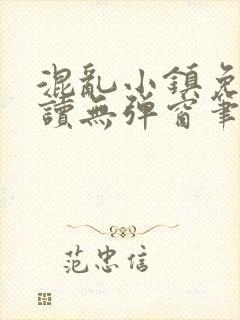 混亂小鎮免
讀無彈窗筆
范忠信